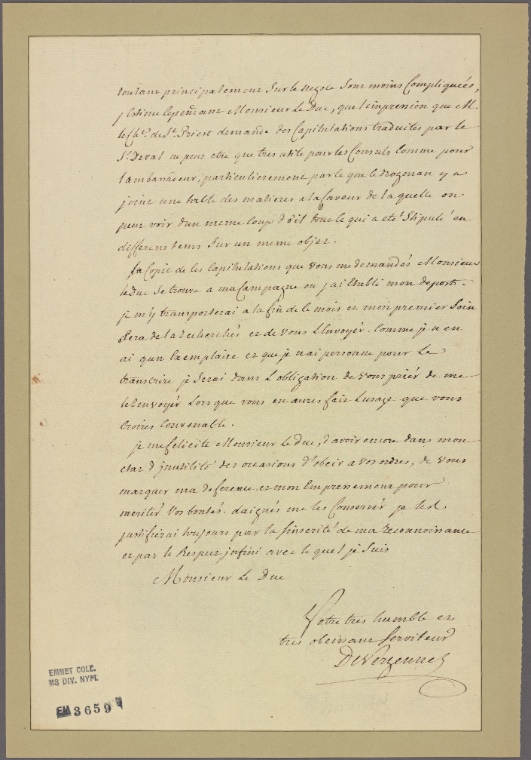 toutant principalement sur le negoce sont moins Compliqueés,
j'estime cependant Monsieur Le Duc, que l'impression que M.
le Chr. de St. Priest demande des Capitulations traduites par le
Sr. Deval ne peut etre que tres utile pour les Consuls Comme pour
l'ambassadeur, particulierement parce que le drogman y a
joint une table des matieres a la faveur de la quelle on
peut voir d'un meme coup d'œil tout ce qui a eté stipulé en
differens tems sur un meme objet.
La Copie de ces Capitulations que vous me demandés Monsieur
le Duc se trouve a ma Campagne ou j'ai Etabli mon depost.
je m'y transporterai a la fin de le mois et mon premier soin
sera de la rechercher et de vous L'envoyér. Comme je n'en
ai qun Exemplaire et que je n'ai personne pour le
transcrire je serai dans L'obligation de vous priér de me
le renvoyér Lors que vous en aures fait L'usage que vous
croires Convenable.
je me felicite Monsieur Le Duc, d'avoir encore dans mon
etat d'inutilité des occasions d'obeir a vos ordres, de vous
marquer ma deference et mon Empressement pour
meriter vos bontés. daignés me les Conserver je les
justifierai toujours par la sincerité de ma reconnoissance
et par le Respect infini avec le quel je suis
Monsieur Le Duc
Votre tres humble et
tres obeissant serviteur
De Vergennes
EMMET COLL.
MS DIV. NYPL
EM 3659